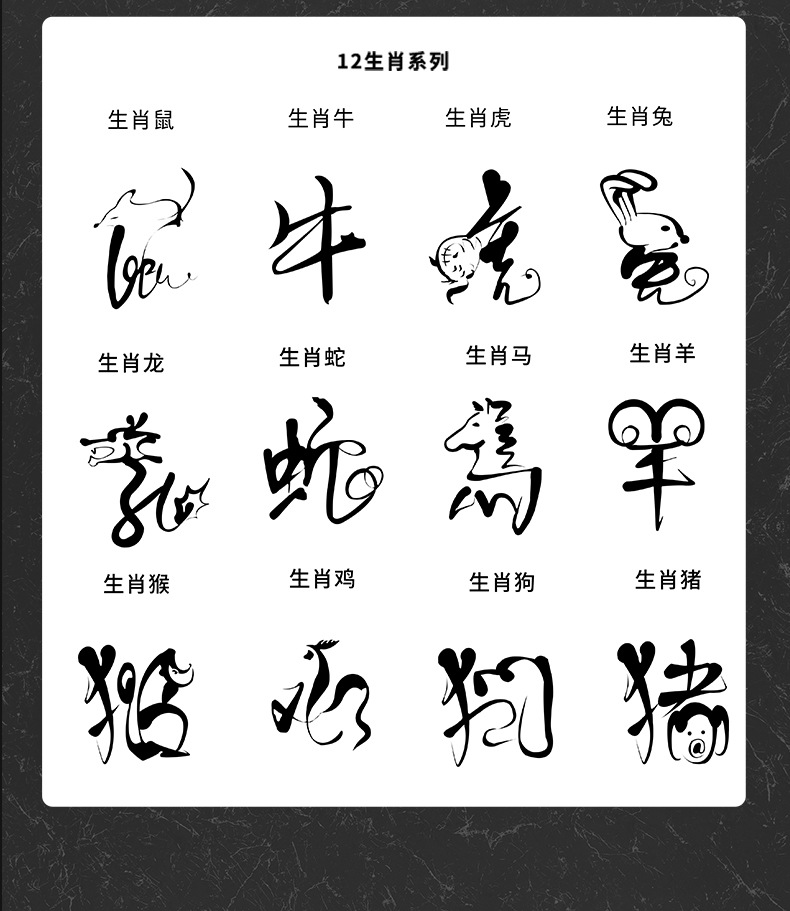 12生肖系列
生肖鼠 生肖牛 生肖虎 生肖兔
鼠 牛 虎 兔
生肖龙 生肖蛇 生肖马 生肖羊
龙 蛇 馬 羊
生肖猴 生肖鸡 生肖狗 生肖猪
猴 鸡 狗 猪